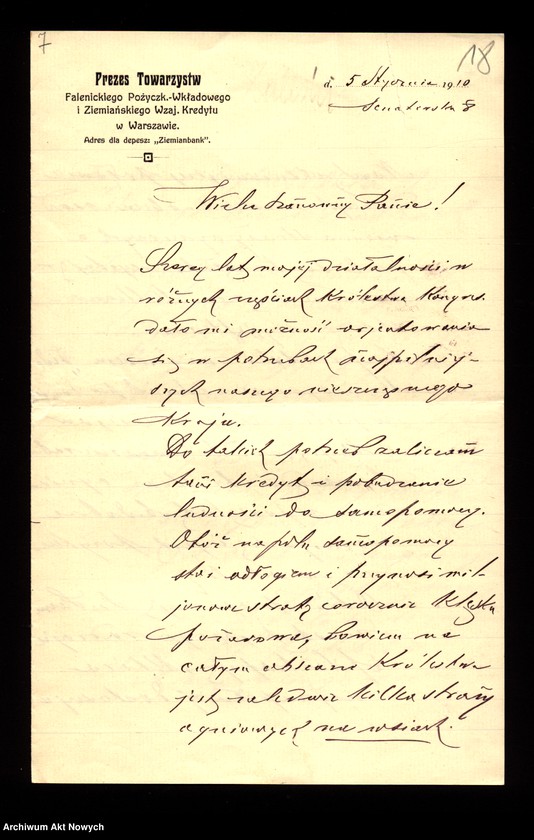 7
18
Prezes Towarzystw
Falenickiego Pożyczk.-Wkładowego
i Ziemiańskiego Wzaj. Kredytu
w Warszawie.
Adres dla depesz: „Ziemianbank".
d. 5 Stycznia 1910
Senatorska 8
Wielce Szanowny Panie!
Szereg lat mojej działalności w
różnych częściach Królestwa Kongres.
dało mi możność orjentowania
się w potrzebach najpilniej-
szych naszego nieszczęsnego
Kraju.
Do takich potrzeb zaliczam
tani kredyt i pobudzanie
ludności do samopomocy.
Otóż na polu samopomocy
stoi odłogiem i przynosi mil-
jonowe straty corocznie Klęska
pożarowa, bowiem na
całym obszarze Królestwa
jest zaledwie kilka straży
ogniowych na wsiach.
Archiwum Akt Nowych